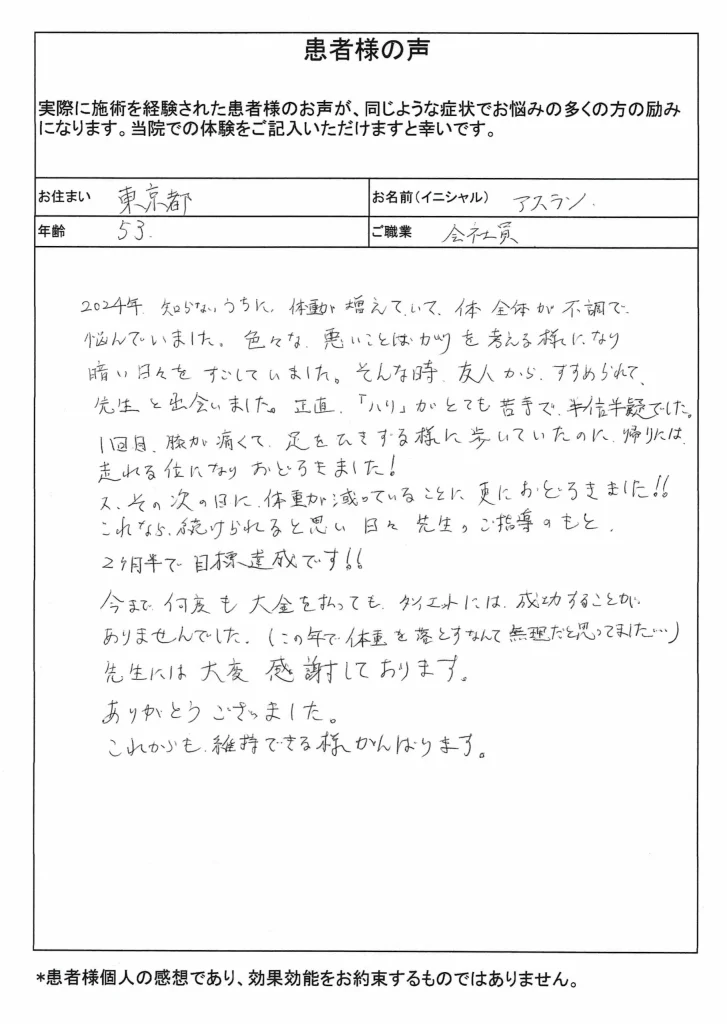 患者様の声
実際に施術を経験された患者様のお声が、同じような症状でお悩みの多くの方の励み
になります。当院での体験をご記入いただけますと幸いです。
お住まい 東京都 お名前(イニシャル) アスラン.
年齢 53. ご職業 会社員
2024年 知らないうちに、体重が増えていて、体全体が不調で
悩んでいました。色々な悪いことばかりを考える様になり
暗い日々をすごしていました。そんな時、友人からすすめられて、
先生と出会いました。正直、「ハリ」がとても苦手で、半信半疑でした。
1回目、膝が痛くて、足をひきずる様に歩いていたのに、帰りには、
走れる位になりおどろきました!
又、その次の日に、体重が減っていることに更におどろきました!!
これなら、続けられると思い 日々 先生のご指導のもと、
2ヶ月半で目標達成です!!
今まで、何度も大金を払っても、ダイエットには、成功することが、
ありませんでした。(この年で体重を落とすなんて無理だと思ってました…)
先生には大変感謝しております。
ありがとうございました。
これからも、維持できる様がんばります。
*患者様個人の感想であり、効果効能をお約束するものではありません。